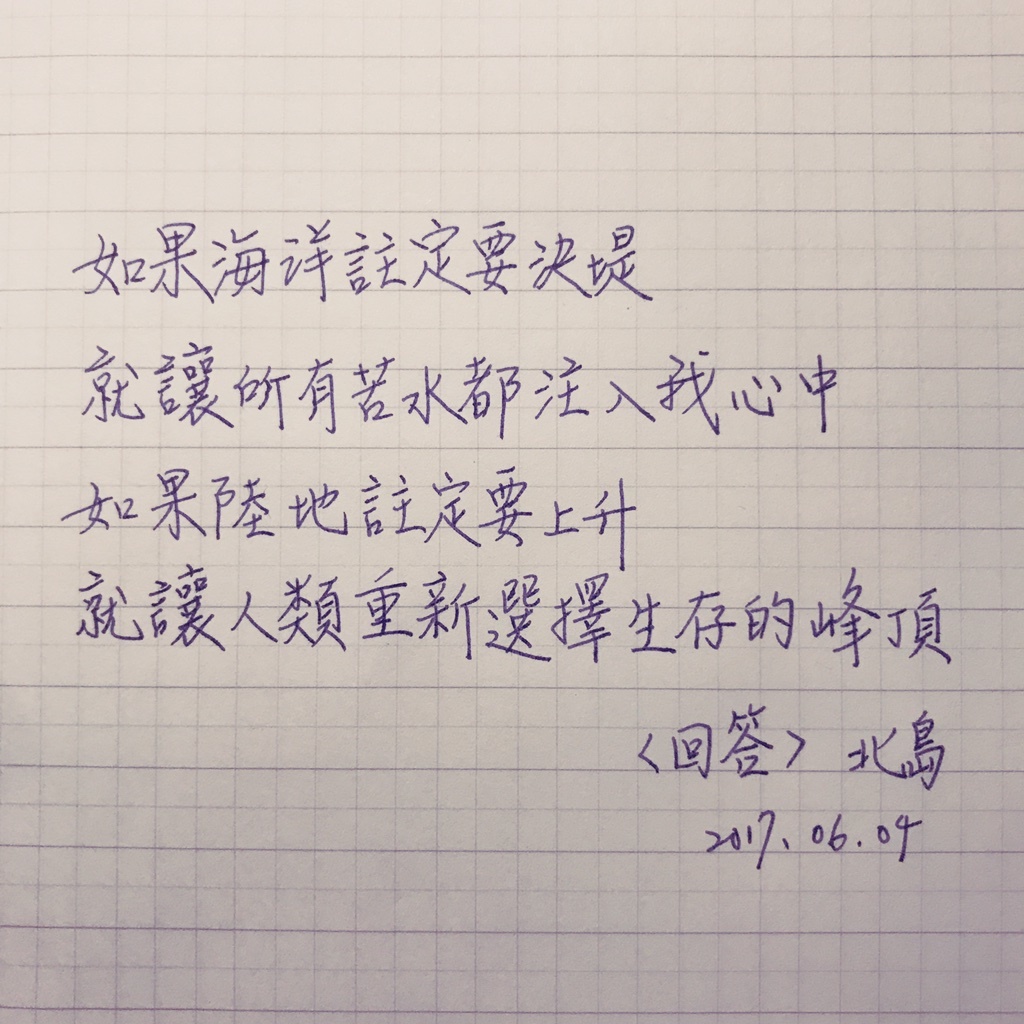 如果海洋註定要決堤
就讓所有苦水都注入我心中
如果陸地註定要上升
就讓人類重新選擇生存的峰頂
〈回答〉北島
2017.06.04